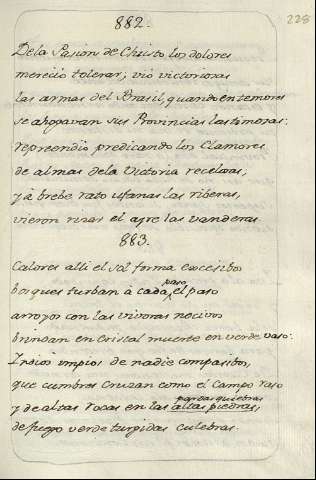 882.
228
Dela Pasión de Christo los dolores
mereció tolerar, vió victoriosas
las armas del Brasil, quando en temores
se ahogavan sus Provincias lastimosas:
reprendió predicando los Clamores
de almas dela Victoria recelosas,
y à brebe rato ufanas las riberas,
vieron rizar el ayre las vanderas
883.
Calores alli el sol forma excesibos
bosques turban à cada el paso
paso
arroyos con las vivoras nocivos
brindan en Cristal muerto en verde vaso:
Indios impios de nadie compasibos,
que cumbres cruzan como el campo raso
pardas quiebras
y de altas rocas en las altas piedras,
de fuego verde turgidas culebras.